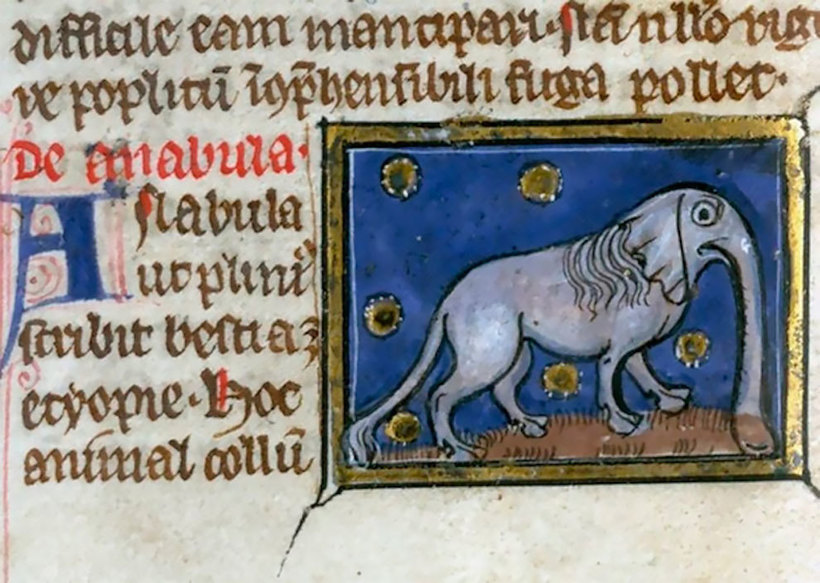 difficile eam mancipari. Nā illo vigo
re poplitū īcōp̄hensibili fuga pollet.
De anabula.
ANabula
ut pliniꝰ
scribit bestia ꝫ
etyopie. Hoc
animal collū